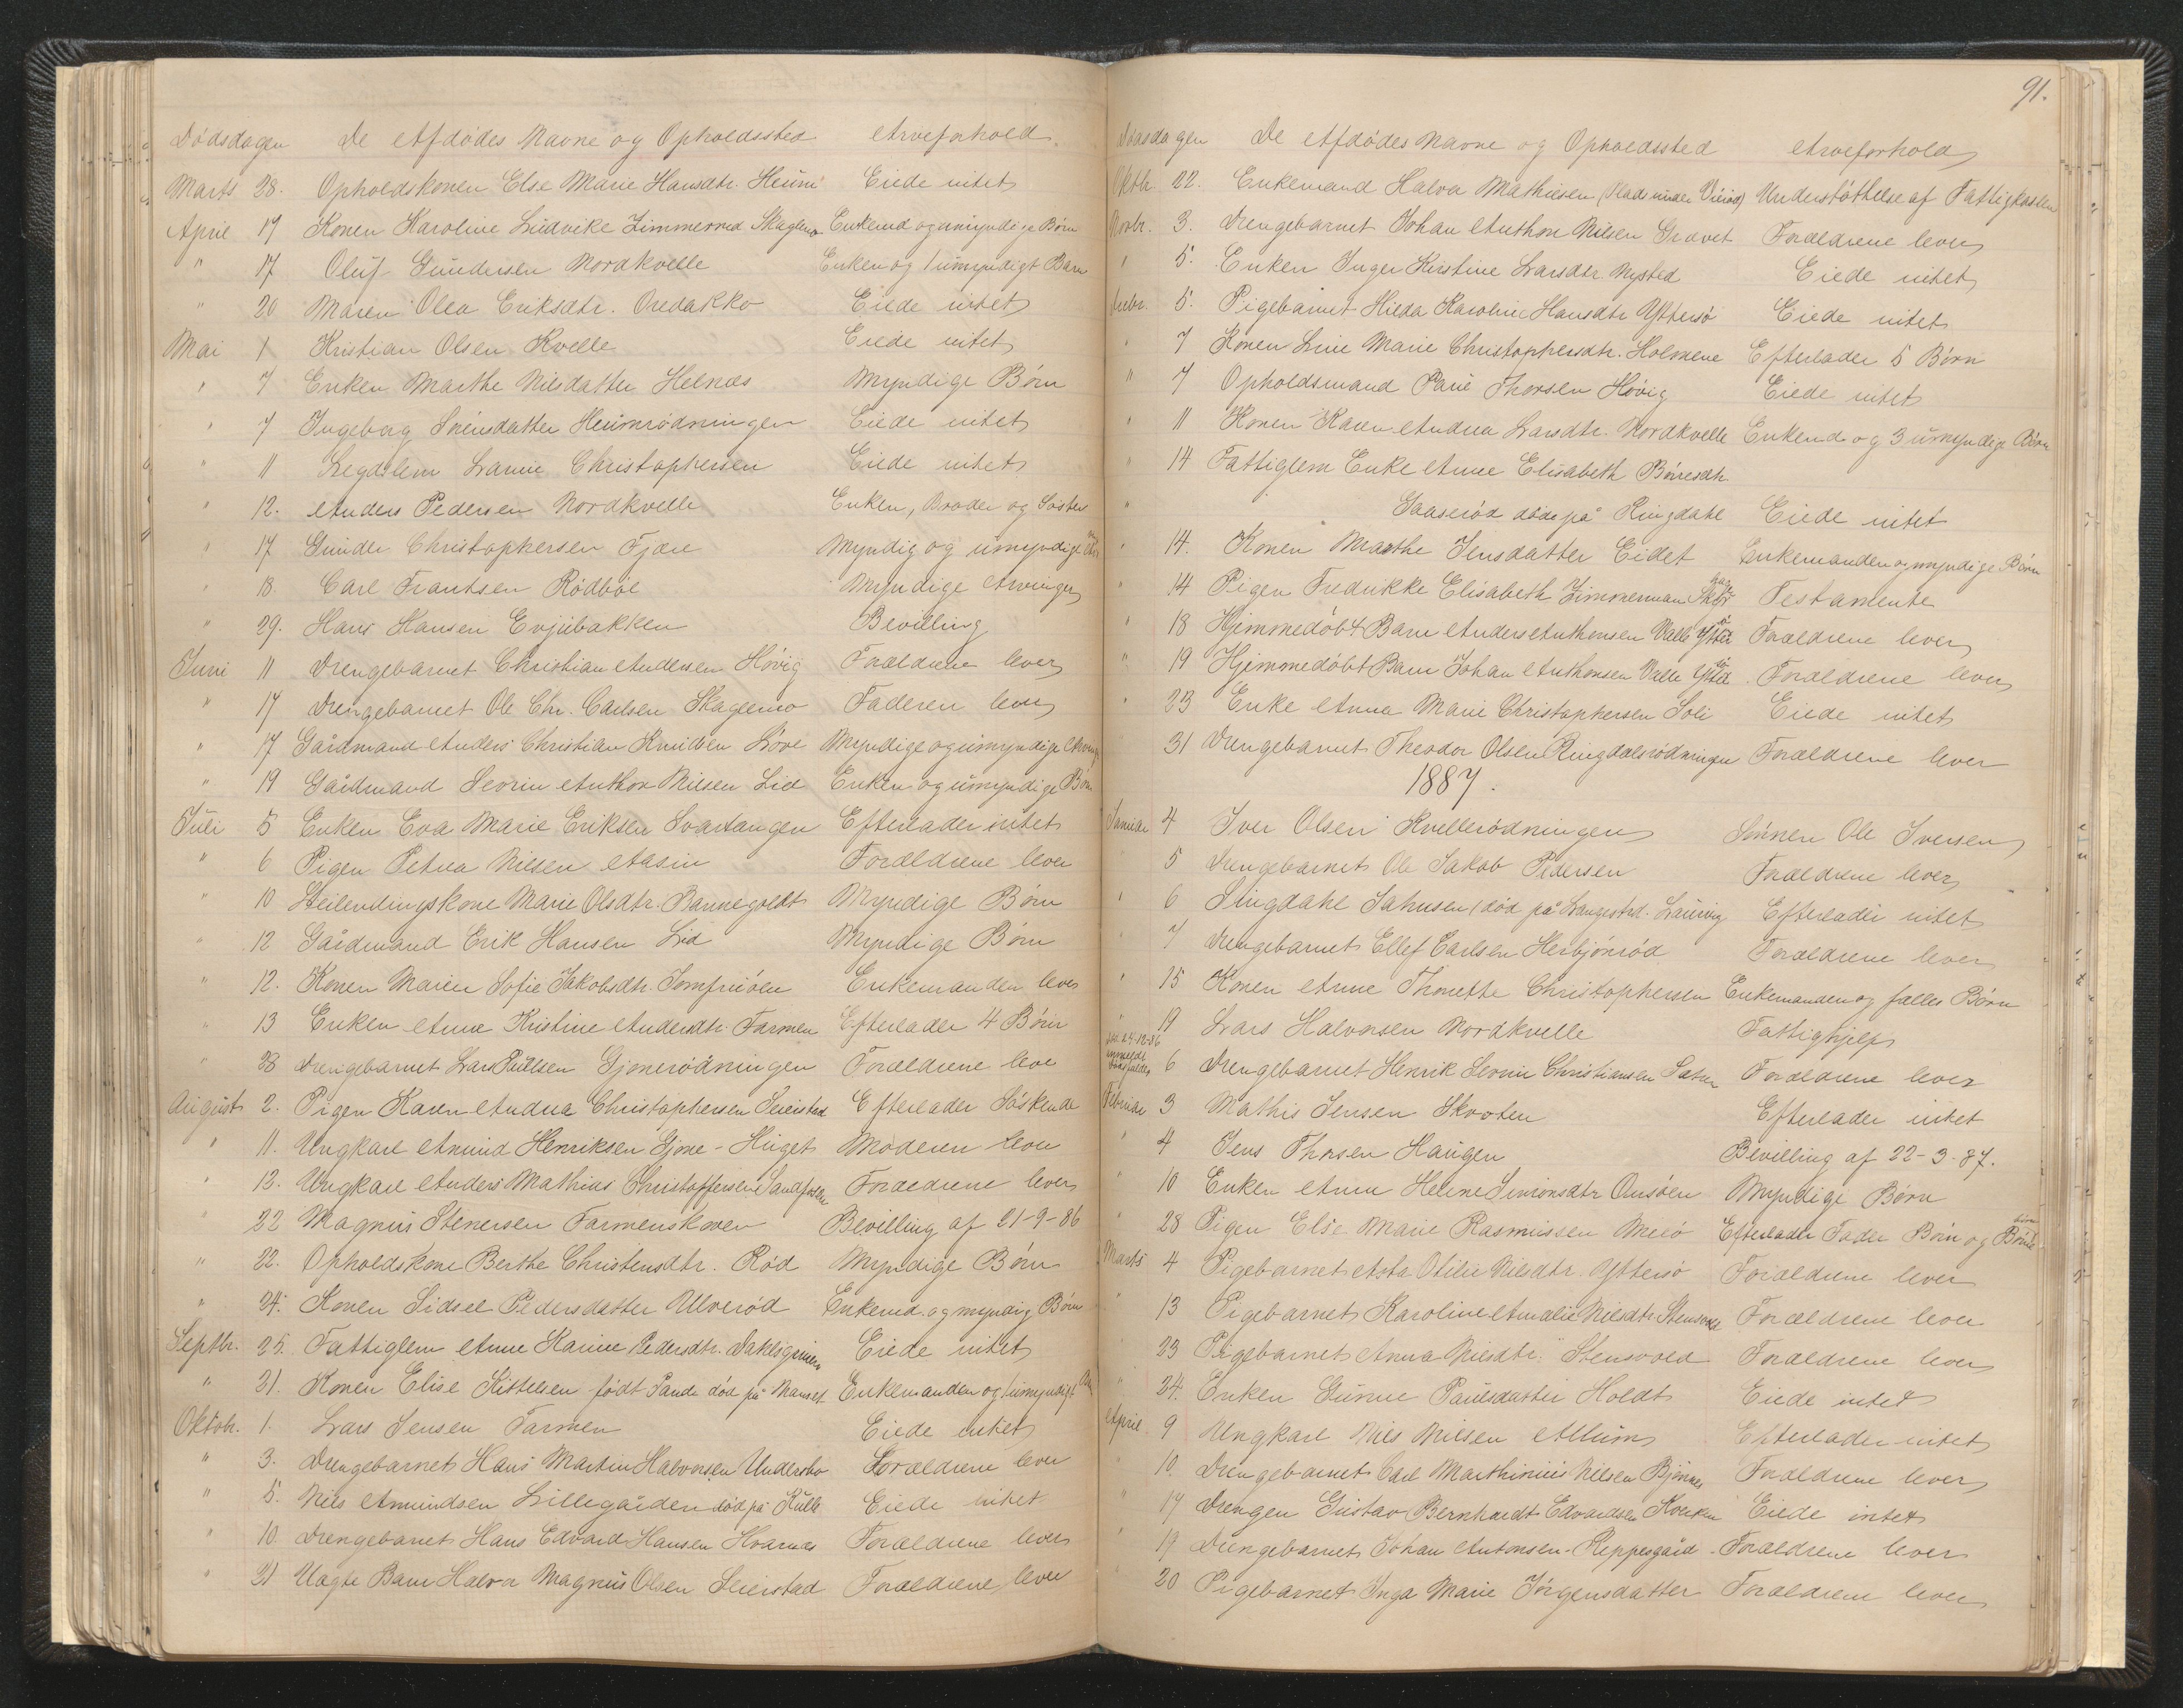 Dødsdagen De Afdødes Navne og Opholdssted Arveforhold.
Marts 28. Opholdskonen Else Marie Hansdtr. Heum Eiede intet
April 17 Konen Karoline Ludvike Zimmermd Skagleno Enkemd og umyndige Børn
" 17 Oluf Gundersen Nordkvelle Enken og 1 umyndigt Barn
" 20 Maren Olea Eriksdtr. Oredakko Eiede intet
Mai 1 Kristian Olsen Kvelle Eiede intet
" 7 Enken Marthe Nilsdatter Helnæs Myndige Børn
" 7 Ingeborg Sørensdatter Heumrødningen Eiede intet
" 11 Legdslem Lauus Christophersen Eiede intet
" 12. Anders Pedersen Nordkvelle Enken, Broder og Søster
" 17 Gunder Christophersen Fjære Myndig og umyndige
" 18 Carl Frantsen Rødbøl Myndige Arvinger
" 29. Hans Hansen Evjubakken Bevilling
Juni 11 Drengebarnet Christian Andersen Høvig Forældrene lever
" 17 Drengebarnet Ole Chr. Carlsen Skagleno Faderen lever
" 17 Gårdmand Anders Christian Knudsen Løve Myndige og umyndige Arvinge
" 19 Gårdmand Severin Anthon Nilsen Lid Enken og umyndige Børn
Juli 5 Enken Eva Marie Eriksen Svartangen Efterlader intet
" 6 Pigen Petrea Nilsen Aasin Forældrene lever
" 10 Selvendingskone Marie Olsdtr. Rannegoldt Myndige Børn
" 12 Gårdmand Erik Hansen Lid Myndige Børn
" 12. Konen Maren Sofie Jakobsdtr. Jomfruöen Enkemanden lever
" 13 Enken Anne Kristine Andersdtr. Farmen Efterlader 4 Børn
" 28 Drengebarnet Lars Paulsen Gjonerødningen Forældrene leve
August 2. Pigen Karen Andrea Christophersen Seierstad Efterlader Søskende
" 11. Ungkarl Amund Henriksen Gjone-Huget Moderen lever
" 12. Ungkarl Anders Mathias Christoffersen Sandfossen Forældrene lever
" 22 Magnus Stenersen Farmenskoven Bevilling af 21-9-86
" 22. Opholdskone Berthe Christensdtr. Rød Myndige Børn
" 24. Konen Sidsel Pedersdatter Ulverød Enkemd. og myndig Børn
Septbr. 25. Fattiglem Anne Karine Pedersdtr. Dahlsgrinen Eiede intet
" 21. Konen Elise Kittelsen født Pande død på Manset Enkemanden og 1 umyndigt
Oktobr. 1. Lars Jensen Farmen Eiede intet
" 3. Drengebarnet Hans Martin Halvorsen Undersbo Forældrene lever
" 5. Nils Amundsen Lillegården død på Kulle Eiede intet
" 10. Drengebarnet Hans Edvard Hansen Hvarnæs Forældrene lever
" 21 Uægte Barn Halvor Magnus Olsen Seierstad Forældrene lever
91.
Dødsdagen De Afdødes Navne og Opholdssted Arveforhold
Oktb. 22. Enkemand Halvor Mathiesen (Plads under Vierød) Understøttelse af Fattigkassen
Novbr. 3. Drengebarnet Johan Anthon Nilsen Gravet Forældrene lever
" 5. Enken Inger Kirstine Larsdtr. Nysted Eiede intet
5. Pigebarnet Hilda Karoline Hansdtr Yttersø Eiede intet
" 7 Konen Line Marie Christophersdtr. Holmene Efterlader 5 Børn
" 7 Opholdsmand Paul Thorsen Høvig Eiede intet
" 11 Konen Karen Andrea Larsdtr. Nordkvelle Enkemd. og 3 umyndige Børn
" 14 Fattiglem Enke Anne Elisabeth Børresdtr.
" Gaaserød døde på Ringdahl Eiede intet
" 14. Konen Marthe Jensdatter Eidet Enkemanden og myndige Børn
" 14 Pigen Fredrikke Elisabeth Zimmerman Testamente
" 18 Hjemmedøbt Barn Anders Anthonsen Valle Forældrene lever
" 19 Hjemmedøbt Barn Johan Anthonsen Valle Forældrene lever
" 23 Enke Anne Marie Christophersen Soli Eiede intet
31 Drengebarnet Theodor Olsen Ringdalsrødningen Forældrene lever
1887.
Januar 4 Iver Olsen Kvellerødningen Sønnen Ole Iversen
" 5 Drengebarnet Ole Jakob Pedersen Forældrene lever
" 6 Lingdahl Jahnsen (død på Langestrd. Laurvig Efterlader intet
" 7 Drengebarnet Ellef Carlsen Herbjønrød Forældrene lever
" 15 Konen Anne Thonette Christophersen Enkemanden og fælles Børn
" 19 Lars Halvorsen Nordkvelle Fattighjelp
6 Drengebarnet Henrik Severin Christiansen Sætra Forældrene lever
Februar 3 Mathis Jensen Skooten Efterlader intet
" 4 Jens Thorsen Haugen Bevilling af 22-3-87.
" 10 Enken Anne Helene Simonsdtr Onsöen Myndige Børn
" 28 Pigen Else Marie Rasmussen Melö Efterlader Fader Børn og Børnebörn
Marts 4 Pigebarnet Asta Otilie Nilsdtr. Yttersø Forældrene lever
" 13 Pigebarnet Karoline Amalie Nilsdtr. Stensvold Forældrene lever
" 23 Pigebarnet Anna Nilsdtr. Stensvold Forældrene lever
" 24. Enken Gunne Paulsdatter Holdt Eiede intet
April 9 Ungkarl Nils Nilsen Allum Efterlader intet
" 10. Drengebarnet Carl Marthinius Nilsen Bjönnes Forældrene lever
" 17 Drengen Gustav Bernhardt Edvardsen Kverken Eiede intet
" 19 Drengebarnet Johan Antonsen-Reppesgård Forældrene lever
" 20 Pigebarnet Inga Marie Jörgensdatter Forældrene lever